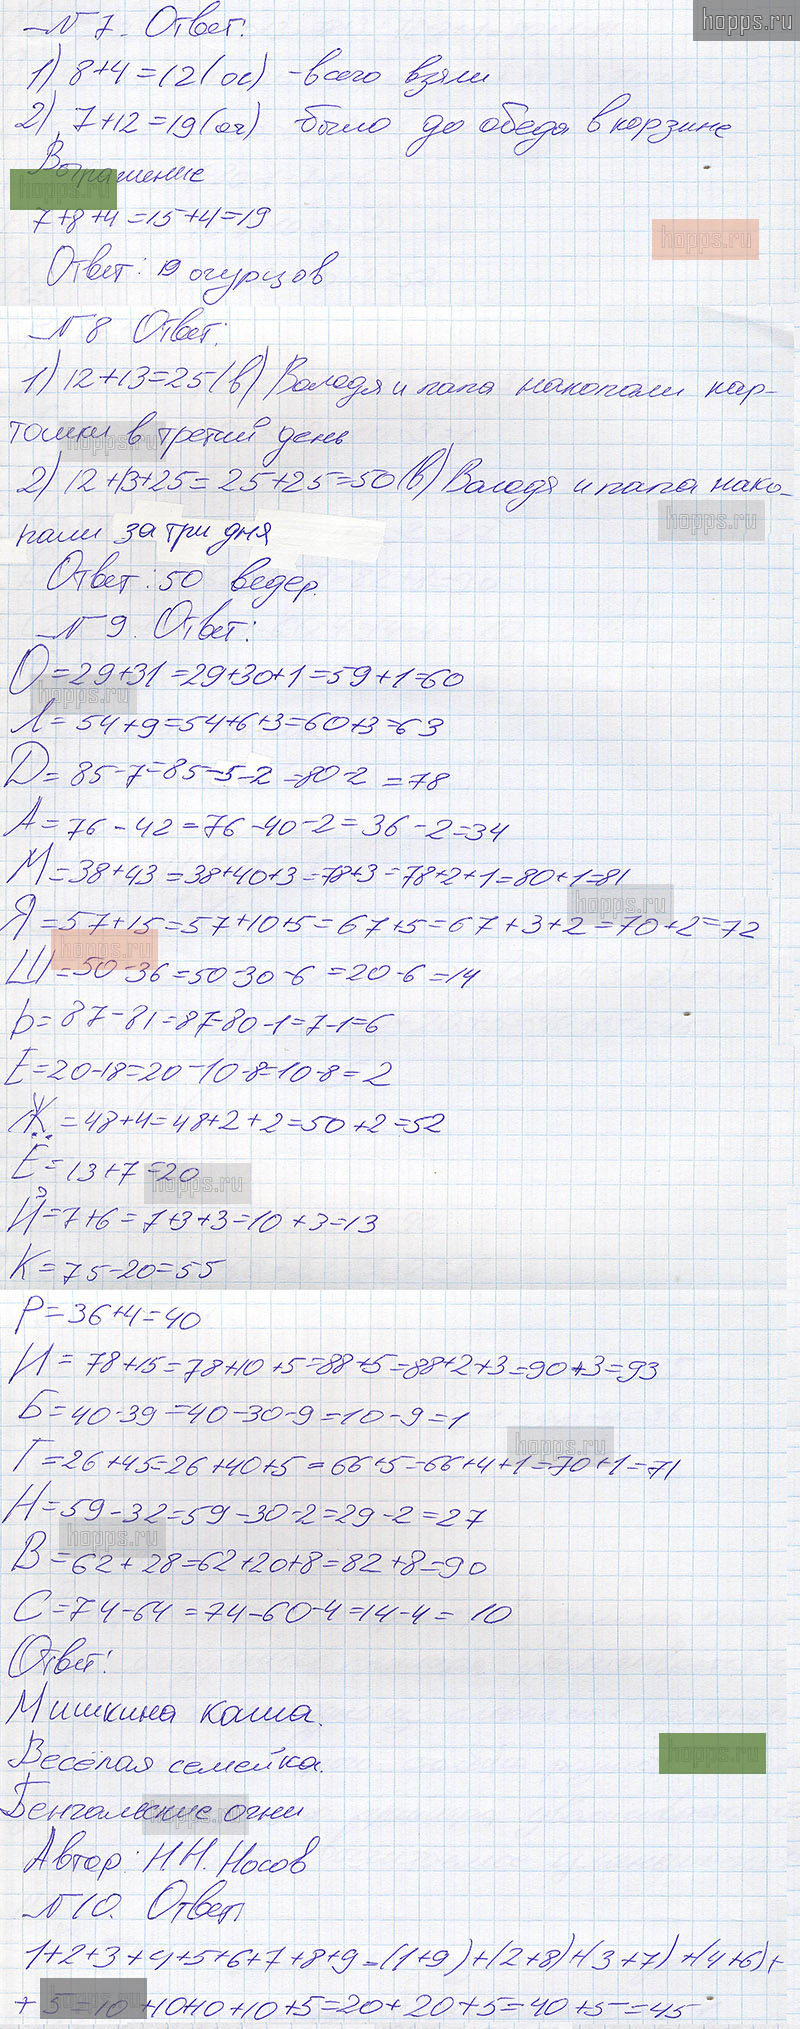 hopps.ru
№7. Ответ:
1) 8+4=12(ог) - всего взяли
2) 7+12=19(ог) было до обеда в корзине
Выражение
hopps.ru
7+8+4=15+4=19
hopps.ru
Ответ: 19 огурцов
№8 Ответ:
1) 12+13=25(в) Володя и папа накопали кар-
тошки в третий день
hopps.ru
2) 12+13+25=25+25=50(в) Володя и папа нако-
hopps.ru
пали за три дня
Ответ: 50 ведер.
№9. Ответ:
О=29+31=29+30+1=59+1=60
hopps.ru
Л=54+9=54+6+3=60+3=63
Д=85-7=85-5-2=80-2=78
А=76-42=76-40-2=36-2=34
М=38+43=38+40+3=78+3=78+2+1=80+1=81
hopps.ru
Я=57+15=57+10+5=67+5=67+3+2=70+2=72
hopps.ru
Ш=50-36=50-30-6=20-6=14
Ь=87-81=87-80-1=7-1=6
Е=20-18=20-10-8=10-8=2
Ж=48+4=48+2+2=50+2=52
Ё=13+7=20
hopps.ru
Й=7+6=7+3+3=10+3=13
К=75-20=55
Р=36+4=40
И=78+15=78+10+5=88+5=88+2+3=90+3=93
Б=40-39=40-30-9=10-9=1
hopps.ru
Г=26+45=26+40+5=66+5=66+4+1=70+1=71
Н=59-32=59-30-2=29-2=27
hopps.ru
В=62+28=62+20+8=82+8=90
С=74-64=74-60-4=14-4=10
Ответ:
Мишкина каша.
Весёлая семейка.
hopps.ru
Бенгальские огни
hopps.ru
Автор: Н.Н. Носов
№10. Ответ:
1+2+3+4+5+6+7+8+9=(1+9)+(2+8)+(3+7)+(4+6)+
+5=10+10+10+10+5=20+20+5=40+5=45
hopps.ru